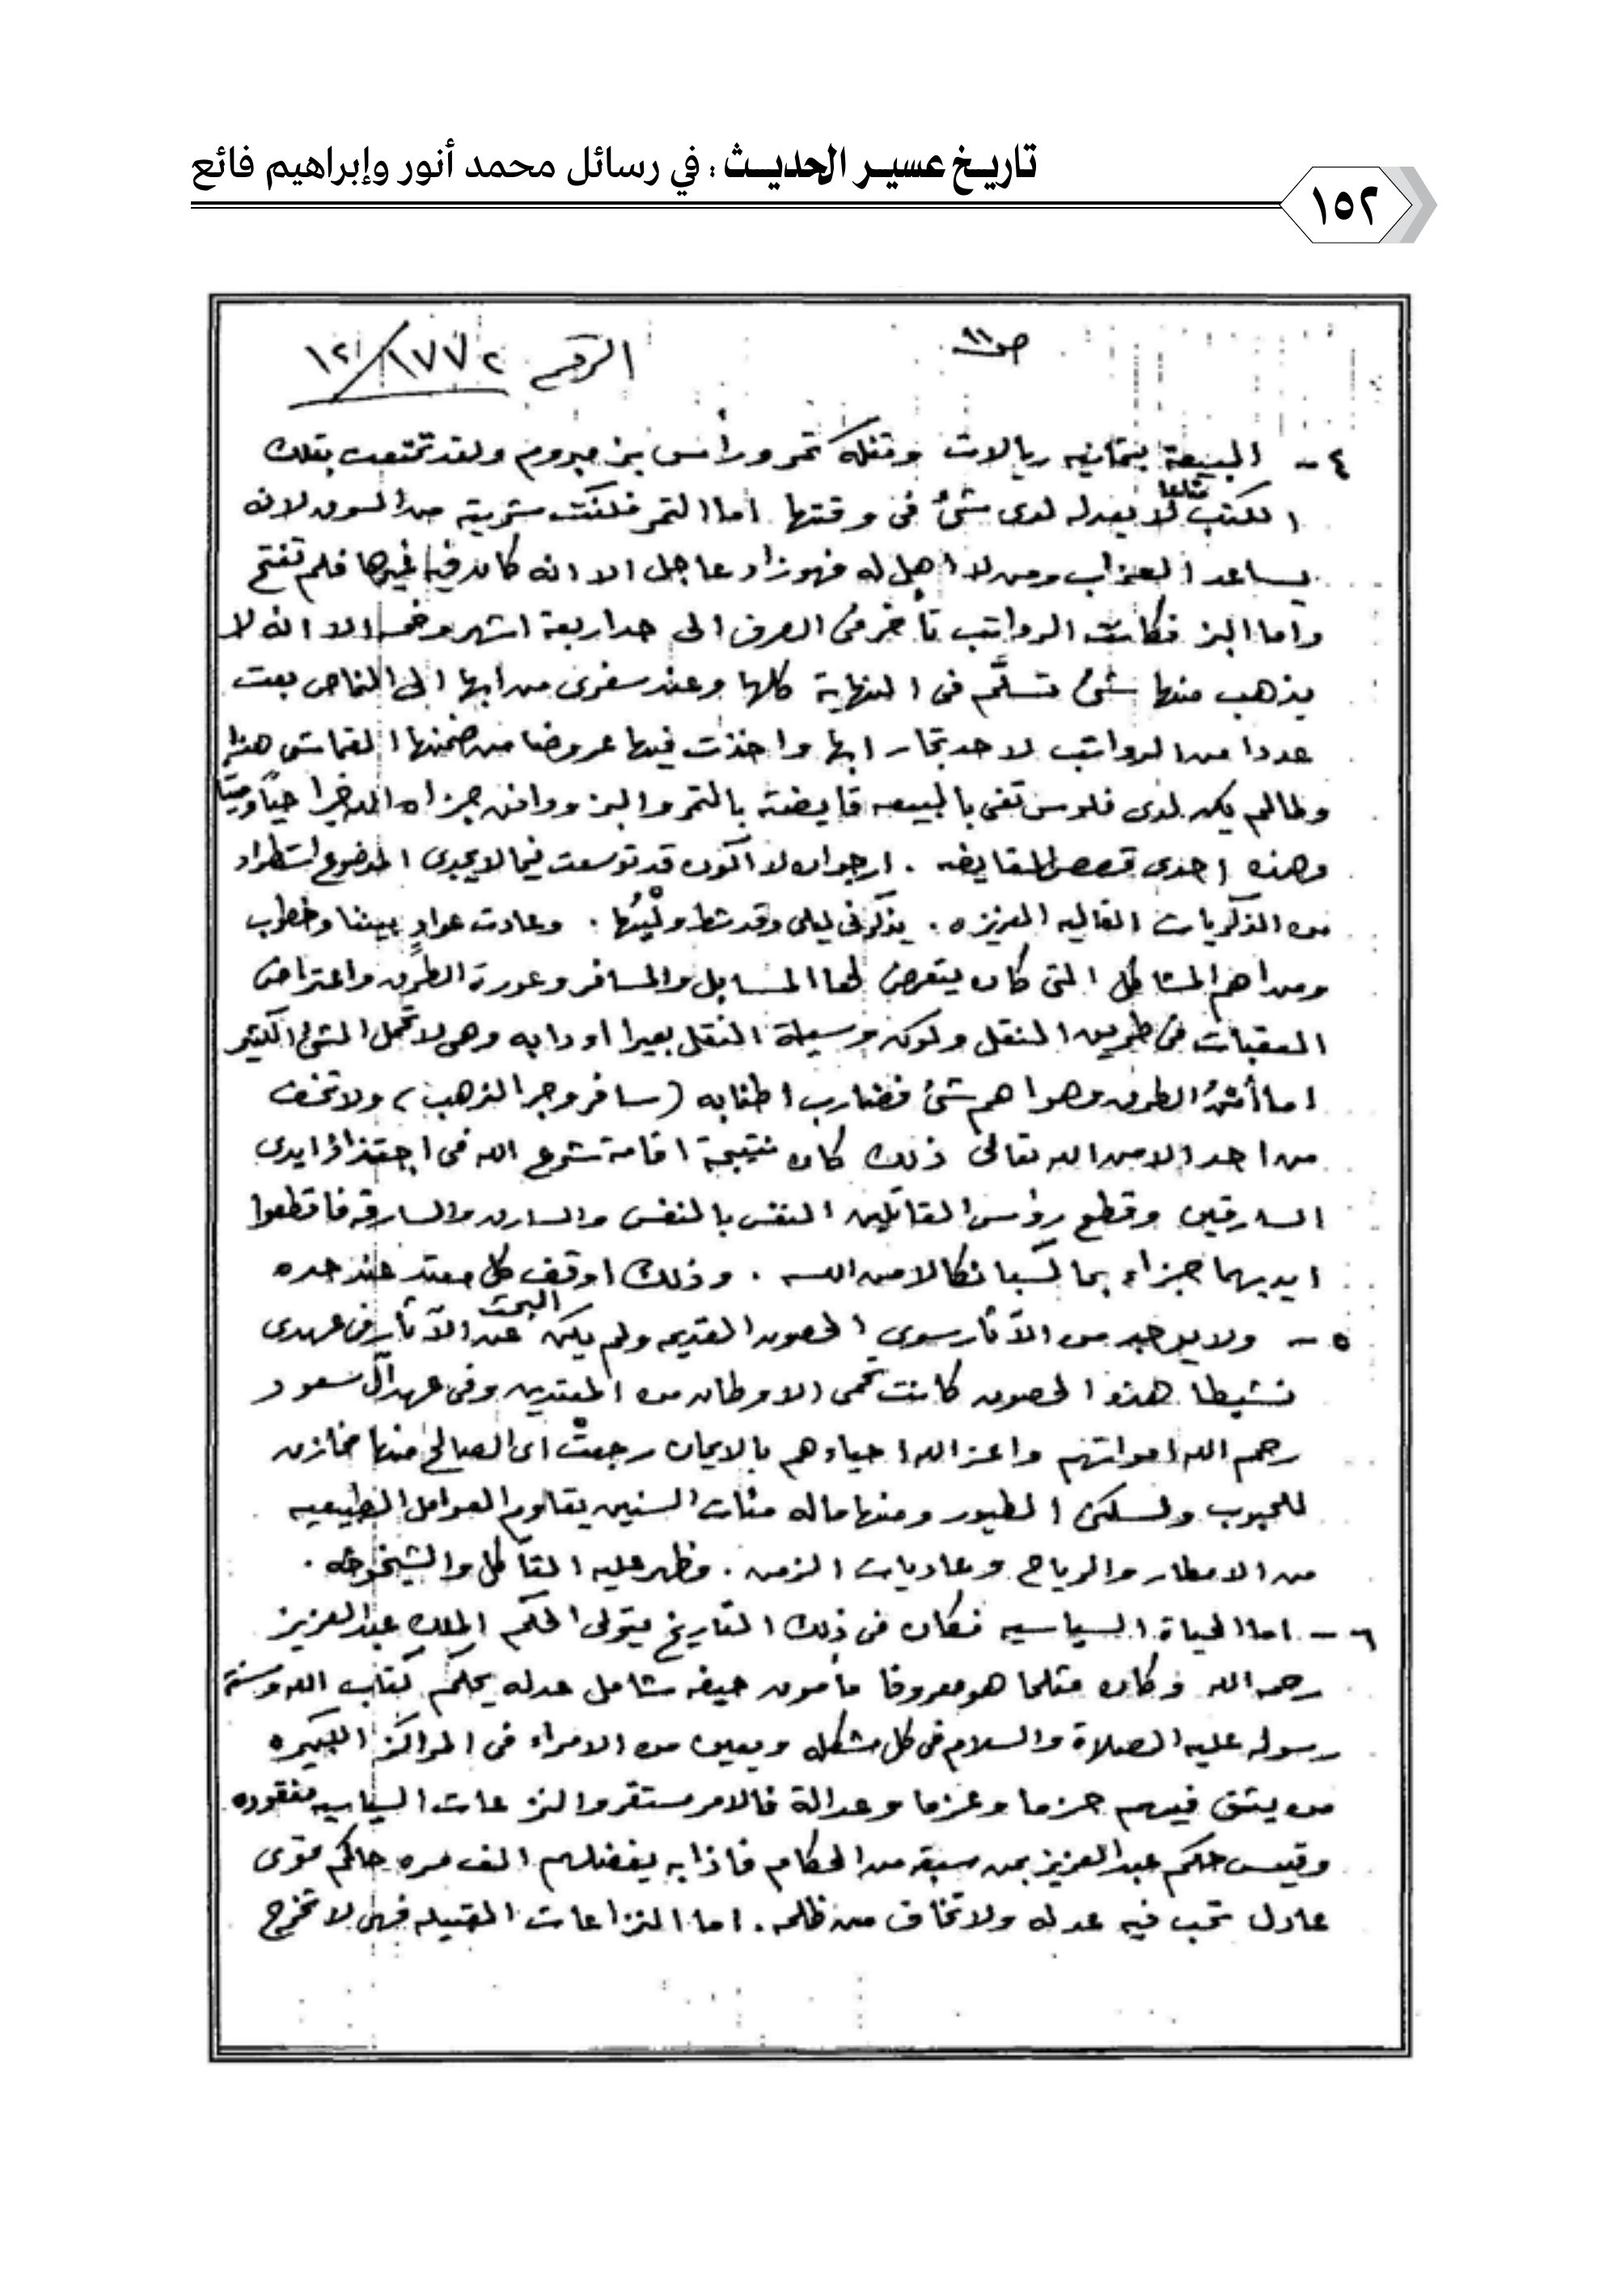 تاريخ عسير الحديث : في رسائل محمد أنور وإبراهيم فائع
١٥٢
ص١١
الرقم ١٧٧٢/١٢
٤ - البيعة بثمانيه ريالات وتنكة تمر ورأس بز مبروم ولقد تمتعت بتلك
الكتب متاعا لا يعدله لدى شئ فى وقتها اما التمر فكنت مشتريته من السوق لانه
يساعد العزاب ومن لا اهل له فهو زاد عاجل الا انه كان فيه غيرها فلم تفتح
واما البز فكانت الرواتب تأخر فى الصرف الى حد اربعة اشهر وخمسه الا انه لا
يذهب منها شئ تسلَّم فى النهاية كلها وعند سفرى من ابها الى النماص بعت
عددا من الرواتب لاحد تجار ابها واخذت فيها عروضا من ضمنها القماش هذا
وطالم يكن لدى فلوس تفى بالبيعه قايضته بالتمر والبز ووافق جزاه الله خيرا حيًا وميتًا
وهذه احدى قصص المقايضه . ارجو ان لا اكون قد توسعت فيما لا يجدى الموضوع استطراد
من الذكريات الغاليه العزيزه . يذكرنى ليلى وقد شط وليُها . وعادت عوادٍ بيننا وخطوب
ومن اهم المشاكل التى كان يتعرض لها المسابل والمسافر وعورة الطرق واعتراض
العقبات فى طريق المتنقل ولكون وسيلة النقل بعيرا او دابه وهى لا تحمل الشئ الكثير
اما أمن الطرق وهو اهم شئ فضارب اطنابه (سافر وجر الذهب) ولا تخف
من احد الا من الله تعالى ذلك كان نتيجة اقامة شرع الله فى اجتذاذ ايدى
السارقين وقطع رؤس القاتلين النفس بالنفس والسارق والسارقه فاقطعوا
ايديهما جزاء بما كسبا نكالا من الله . وذلك اوقف كل معتد عند حده
٥ - ولا يوجد من الآثار سوى الحصون القديمه ولم يكن البحث عن الآثار فى عهدى
نشيطا هذه الحصون كانت تحمى الاوطان من المعتدين وفى عهد آل سعود
رحم الله امواتهم واعز الله احياءهم بالايمان رجعت اى الصالح منها مخازن
للحبوب ولسكن الطيور ومنها ماله مئات السنين يقاوم العوامل الطبيعيه
من الامطار والرياح وعاديات الزمن . وظهر عليه التآكل والشيخوخه .
٦ - اما الحياة السياسيه فكان فى ذلك التاريخ يتولى الحكم الملك عبد العزيز
رحمه الله وكان مثلما هو معروفا مأمون حيفه شامل عدله يحكم كتاب الله وسنة
رسوله عليه الصلاة والسلام فى كل مشكله ويعين من الامراء فى المراكز الكبيره
من يثق فيهم حزما وعزما وعدالة فالامر مستقر والنزعات السياسيه مفقوده
وقيس حكم عبد العزيز بمن سبقه من الحكام فاذا به يفضلهم الف مره حاكم قوى
عادل تحب فيه عدله ولا تخاف من ظلمه . اما النزاعات القبيله فهى لا تخرج